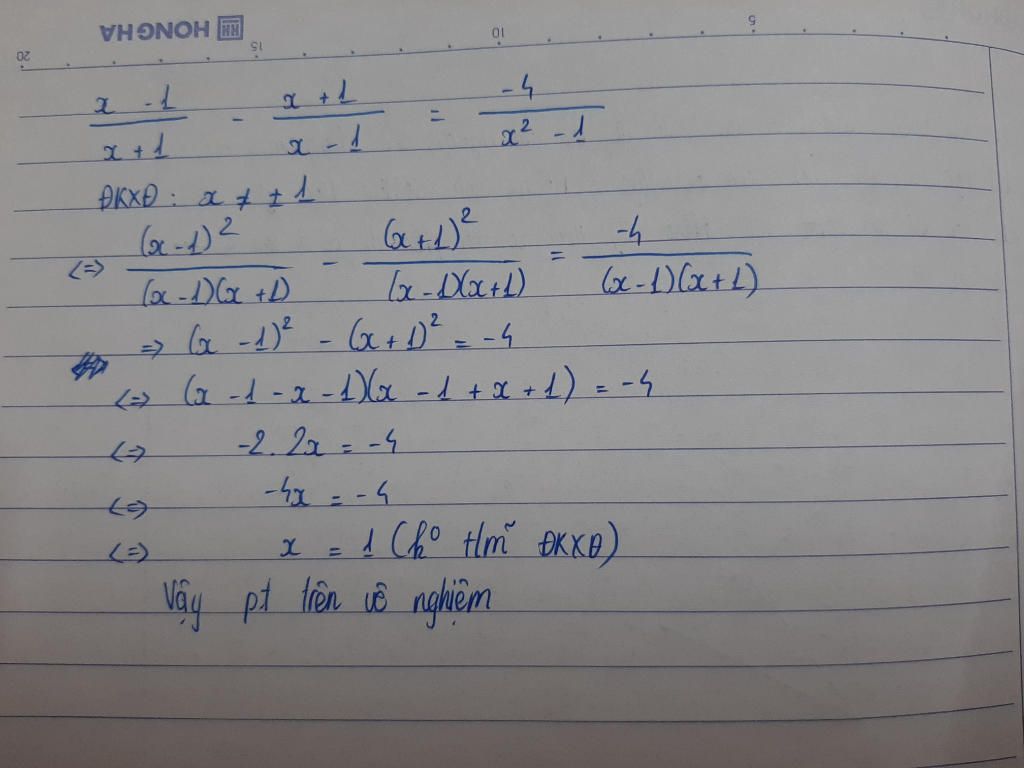 HONG HA
20 15 10 5
\frac{x - 1}{x + 1} - \frac{x + 1}{x - 1} = \frac{-4}{x² - 1}
ĐKXĐ : x ≠ ± 1
<=> \frac{(x - 1)²}{(x - 1)(x + 1)} - \frac{(x + 1)²}{(x - 1)(x + 1)} = \frac{-4}{(x - 1)(x + 1)}
=> (x - 1)² - (x + 1)² = -4
<=> (x - 1 - x - 1)(x - 1 + x + 1) = -4
<=> -2. 2x = -4
<=> -4x = -4
<=> x = 1 (k° t/m~ ĐKXĐ)
Vậy pt trên vô nghiệm